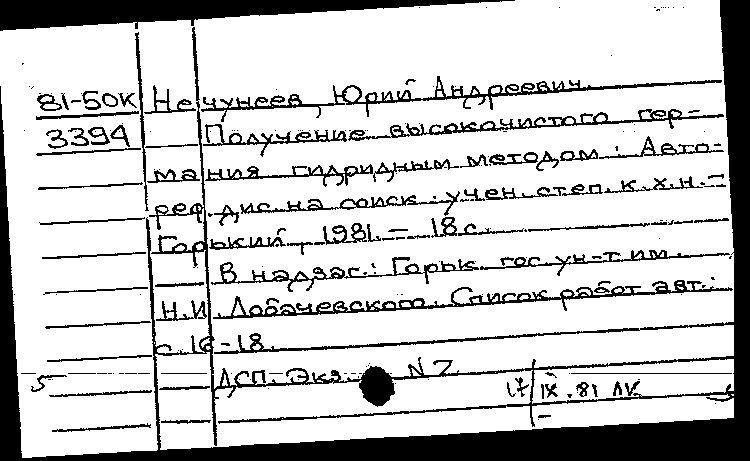 81-50К Нечунеев, Юрий Андреевич.
3394 Получение высокочистого гер-
мания гидридным методом: Авто-
реф. дис. на соиск. учен. степ. к. х. н. -
Горький, 1981. - 18 с.
В надзаг.: Горьк. гос. ун-т им.
Н.И. Лобачевского. Список работ авт.:
с. 16-18.
ДСП. Экз. N 2
17 IX. 81 ЛК